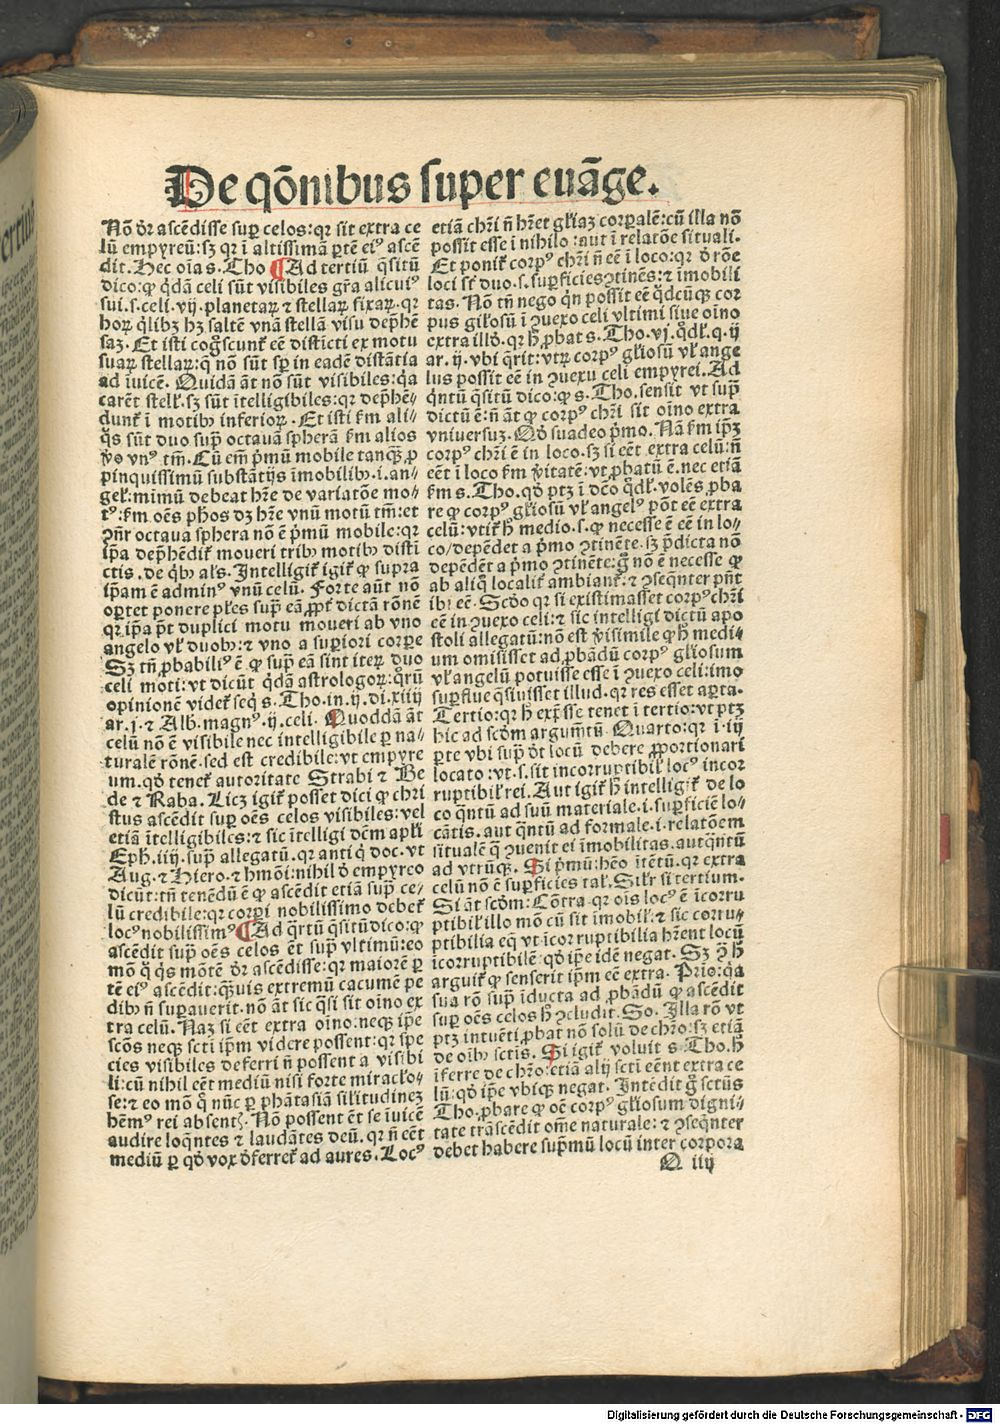 De qōnibus super euāge.
Nō d̄r ascēdisse sup celos: qr sit extra ce
lū empyreū: sz qr ī altissimā ptē eiꝰ ascē
dit. Hec oīa s. Tho ¶ Ad tertiū q̄sitū
dico: ꝙ q̄dā celi sūt visibiles gr̄a alicuiꝰ
sui. s. celi. vij. planetaꝝ ⁊ stellaꝝ fixaꝝ. qr
hoꝝ q̄libz hz saltē vnā stellā visu dep̄hē
saz. Et isti coḡscunt᷑ eē distīcti ex motu
suaꝝ stellaꝝ: q̄ nō sūt sp in eadē distātia
ad īuicē. Quidā āt nō sūt visibiles: q̄a
carēt stell᷑. sz sūt ītelligibiles: qr dep̄hē⸗
dunt᷑ ī motibꝰ inferioꝝ. Et isti fm ali⸗
q̄s sūt duo sup̄ octauā spherā fm alios
ꝟo vnꝰ tm̄. Cū em̄ p̄mū mobile tanqꝫ ꝓ
pinquissimū substātijs īmobilibꝰ. i. an⸗
gel᷑: mimū debeat hr̄e de variatōe mo⸗
tꝰ: fm oēs ph̄os dz hr̄e vnū motū tm̄: et
ꝯn̄r octaua sphera nō ē p̄mū mobile: qr
ip̄a dep̄hēdit᷑ moueri tribꝰ motibꝰ distī
ctis. de q̄bꝰ al̄s. Intelligit᷑ igit᷑ ꝙ supra
ip̄am ē adminꝰ vnū celū. Forte aūt nō
optet ponere pl̄es sup̄ eā ꝓpt᷑ dictā rōnē
qr ip̄a p̄t duplici motu moueri ab vno
angelo vl᷑ duobꝰ: ⁊ vno a supiori corpe
Sz tn̄ ꝓbabiliꝰ ē ꝙ sup̄ eā sint iteꝝ duo
celi moti: vt dicūt q̄dā astrologoꝝ: q̄rū
opinionē videt᷑ seq̄ s. Tho. in. ij. di. xiiij
ar. j. ⁊ Alb. magnꝰ. ij. celi. Quoddā āt
celū nō ē visibile nec intelligibile p na⸗
turalē rōnē. sed est credibile: vt empyre
um. qd̄ tenet᷑ autoritate Strabi ⁊ Be
de ⁊ Raba. Licz igit᷑ posset dici ꝙ chri
stus ascēdit sup oēs celos visibiles: vel
etiā ītelligibiles: ⁊ sic ītelligi dēm apl̄i
Eph̄. iiij. sup̄ allegatū. qr anti q̄ doc. vt
Aug. ⁊ Hiero. ⁊ hmōi: nihil d̄ empyreo
dicūt: tn̄ tenēdū ē ꝙ ascēdit etiā sup̄ ce⸗
lū credibile: qr corpi nobilissimo debet᷑
locꝰ nobilissimꝰ ¶ Ad q̄rtū q̄sitū dico: ꝙ
ascēdit sup̄ oēs celos ēt sup̄ vltimū: eo
mō q̄ q̄s mōtē d̄r ascēdisse: qr maiorē p
tē eiꝰ ascēdit: q̄zuis extremū cacumē pe
dibꝰ n̄ supauerit. nō āt sic q̄si sit oīno ex
tra celū. Naz si eēt extra oīno: neqꝫ ip̄e
scōs neqꝫ scti ip̄m videre possent: qr spe
cies visibiles deferri n̄ possent a visibi
li: cū nihil eēt mediū nisi forte miracl̄o⸗
se: ⁊ eo mō q̄ nūc p phātasiā sil̄itudinez
hēmꝰ rei absentꝭ. Nō possent ēt se īuicē
audire loq̄ntes ⁊ laudātes deū. qr n̄ eēt
mediū p qd̄ vox d̄ferret᷑ ad aures. Locꝰ
etiā chr̄i n̄ hr̄et gl̄iaz corpalē: cū illa nō
possit esse ī nihilo: aut ī relatōe situali.
Et ponit᷑ corpꝰ chr̄i n̄ eē ī loco: qr d̄ rōe
loci st᷑ duo. s. supficies ꝯtinēs: ⁊ īmobili
tas. Nō tn̄ nego q̄n possit eē q̄dcūqꝫ cor
pus gl̄iosū ī ꝯuexo celi vltimi siue oīno
extra illd̄. qr h̄ ꝓbat s. Tho. vj. q̄dl᷑. q. ij
ar. ij. vbi q̄rit: vtꝝ corpꝰ gl̄iosū vl᷑ ange
lus possit eē in ꝯuexu celi empyrei. Ad
q̄ntū q̄sitū dico: ꝙ s. Tho. sensit vt sup̄
dictū ē: n̄ āt ꝙ corpꝰ chr̄i sit oīno extra
vniuersuz. Qd̄ suadeo p̄mo. Nā fm ip̄z
corpꝰ chr̄i ē in loco. sz si eēt extra celū: n̄
eēt ī loco fm ꝟitatē: vt ꝓbatū ē. nec etiā
fm s. Tho. qd̄ ptz ī dc̄o q̄dl᷑. volēs ꝓba
re ꝙ corpꝰ gl̄iosū vl᷑ angelꝰ pōt eē extra
celū: vtit᷑ h̄ medio. s. ꝙ necesse ē eē in lo⸗
co/depēdet a p̄mo ꝯtinēte. sz p̄dicta nō
depēdēt a p̄mo ꝯtinēte: g̊ nō ē necesse ꝙ
ab aliq̊ localit᷑ ambiant᷑: ⁊ ꝯseq̄nter pn̄t
ibi eē. Scd̄o qr si existimasset corpꝰ chr̄i
eē in ꝯuexo celi: ⁊ sic intelligi dictū apo
stoli allegatū: nō est ꝟisimile ꝙ h̄ medi⸗
um omisisset ad ꝓbādū corpꝰ gl̄iosum
vl᷑ angelū potuisse esse ī ꝯuexo celi: imo
supflue q̄siuisset illud. qr res esset apta.
Tertio: qr h̄ exp̄sse tenet ī tertio: vt ptz
hic ad scd̄m argum̄tū. Quarto: qr ī. iij
pte vbi sup̄ d̄t locū debere ꝓportionari
locato: vt. s. sit incorruptibil᷑ locꝰ incor
ruptibil᷑ rei. Aut igit᷑ h̄ intelligit᷑ de lo
co q̄ntū ad suū materiale. i. supficiē lo⸗
cātis. aut q̄ntū ad formale. i. relatōem
situalē q̄ ꝯuenit ei īmobilitas. aut q̄ntū
ad vtrūqꝫ. Si p̄mū: hēo ītētū. qr extra
celū nō ē supficies tal᷑. Sil᷑r si tertium.
Si āt scd̄m: Cōtra. qr oīs locꝰ ē īcorru
ptibil᷑ illo mō cū sit īmobil᷑: ⁊ sic corru⸗
ptibilia eq̄ vt īcorruptibilia hr̄ent locū
īcorruptibilē: qd̄ ip̄e idē negat. Sz ꝯ̄ h̄
arguit᷑ ꝙ senserit ip̄m eē extra. Prīo: q̄a
sua rō sup̄ īducta ad ꝓbādū ꝙ ascēdit
sup̄ oēs celos h̄ ꝯcludit. So. Illa rō vt
ptz intuēti ꝓbat nō solū de chr̄o: sz etiā
de oībꝰ sctis. Si igit᷑ voluit s. Tho. h̄
īferre de chr̄o: etiā alij scti eēnt extra ce
lū: qd̄ ip̄e vbiqꝫ negat. Intēdit g̊ sctūs
Tho. ꝓbare ꝙ oē corpꝰ gl̄iosum digni⸗
tate trāscēdit om̄e naturale: ⁊ ꝯseq̄nter
debet habere sup̄mū locū inter corpora
Q iij
Digitalisierung gefördert durch die Deutsche Forschungsgemeinschaft - DFG